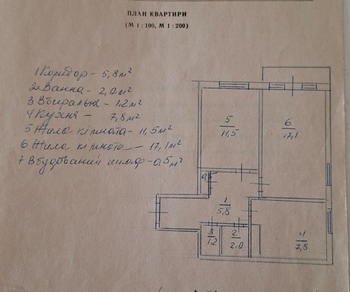 ПЛАН КВАРТИРИ
(М 1 : 100, М 1 : 200)
1 Коридор - 5,8 м²
2 Ванна - 2,0 м²
3 Вбиральня - 1,2 м²
4 Кухня - 7,8 м²
5 Жила кімната - 11,5 м²
6 Жила кімната - 17,1 м²
7 Вбудований шкаф - 0,5 м²
5
11,5
6
17,1
1
5,8
3
1,2
2
2,0
4
7,8